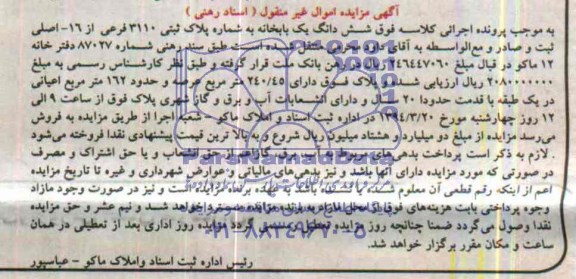 آگهی مزایده اموال غیر منقول ( اسناد رهنی )
به موجب پرونده اجرائی کلاسه فوق شش دانگ یک بابخانه به شماره پلاک ثبتی ۳۱۱۰ فرعی از ۱۶- اصلی
ثبت و صادر و مع الواسطه به آقای داود محرمی منتقل شده است طبق سند رهنی شماره ۸۷۰۲۷ دفتر خانه
۱۲ ماکو در قبال مبلغ ۲۴۶۴۴۷۰۶۰ ریال در رهن بانک ملت قرار گرفته و طبق نظر کارشناس رسمی به مبلغ
۲۰۸۰۰۰۰۰۰۰ ریال ارزیابی شده و پلاک فوق دارای ۲۴۰/۴۵ متر مربع عرصه و حدود ۱۶۲ متر مربع اعیانی
در یک طبقه با قدمت حدودا ۲۰ سال و دارای انشعابات آب و برق و گاز شهری پلاک فوق از ساعت ۹ الی
۱۲ روز چهارشنبه مورخ ۱۳۹۴/۳/۲۰ در اداره ثبت اسناد و املاک ماکو شعبه اجرا از طریق مزایده به فروش
می رسد مزایده از مبلغ دو میلیارد و هشتاد میلیون ریال شروع و به بالا ترین قیمت پیشنهادی نقدا فروخته می شود
. لازم به ذکر است پرداخت بدهی های مربوط به آب، برق، گاز اعم از حق انشعاب و یا حق اشتراک و مصرف
در صورتی که مورد مزایده دارای آنها باشد و نیز بدهی های مالیاتی و عوارض شهرداری و غیره تا تاریخ مزایده
اعم از اینکه رقم قطعی آن معلوم شده یا نشده باشد به عهده برنده مزایده است و نیز در صورت وجود مازاد
وجوه پرداختی بابت هزینه های فوق از محل مازاد به برنده مزایده مسترد خواهد شد و نیم عشر و حق مزایده
نقدا وصول می گردد ضمنا چنانچه روز مزایده تعطیل رسمی گردد مزایده روز اداری بعد از تعطیلی در همان
ساعت و مکان مقرر برگزار خواهد شد.
رئیس اداره ثبت اسناد واملاک ماکو - عباسپور
ParsNamadData
۰۲۱-۸۸۳۴۹۶۷۰-۵